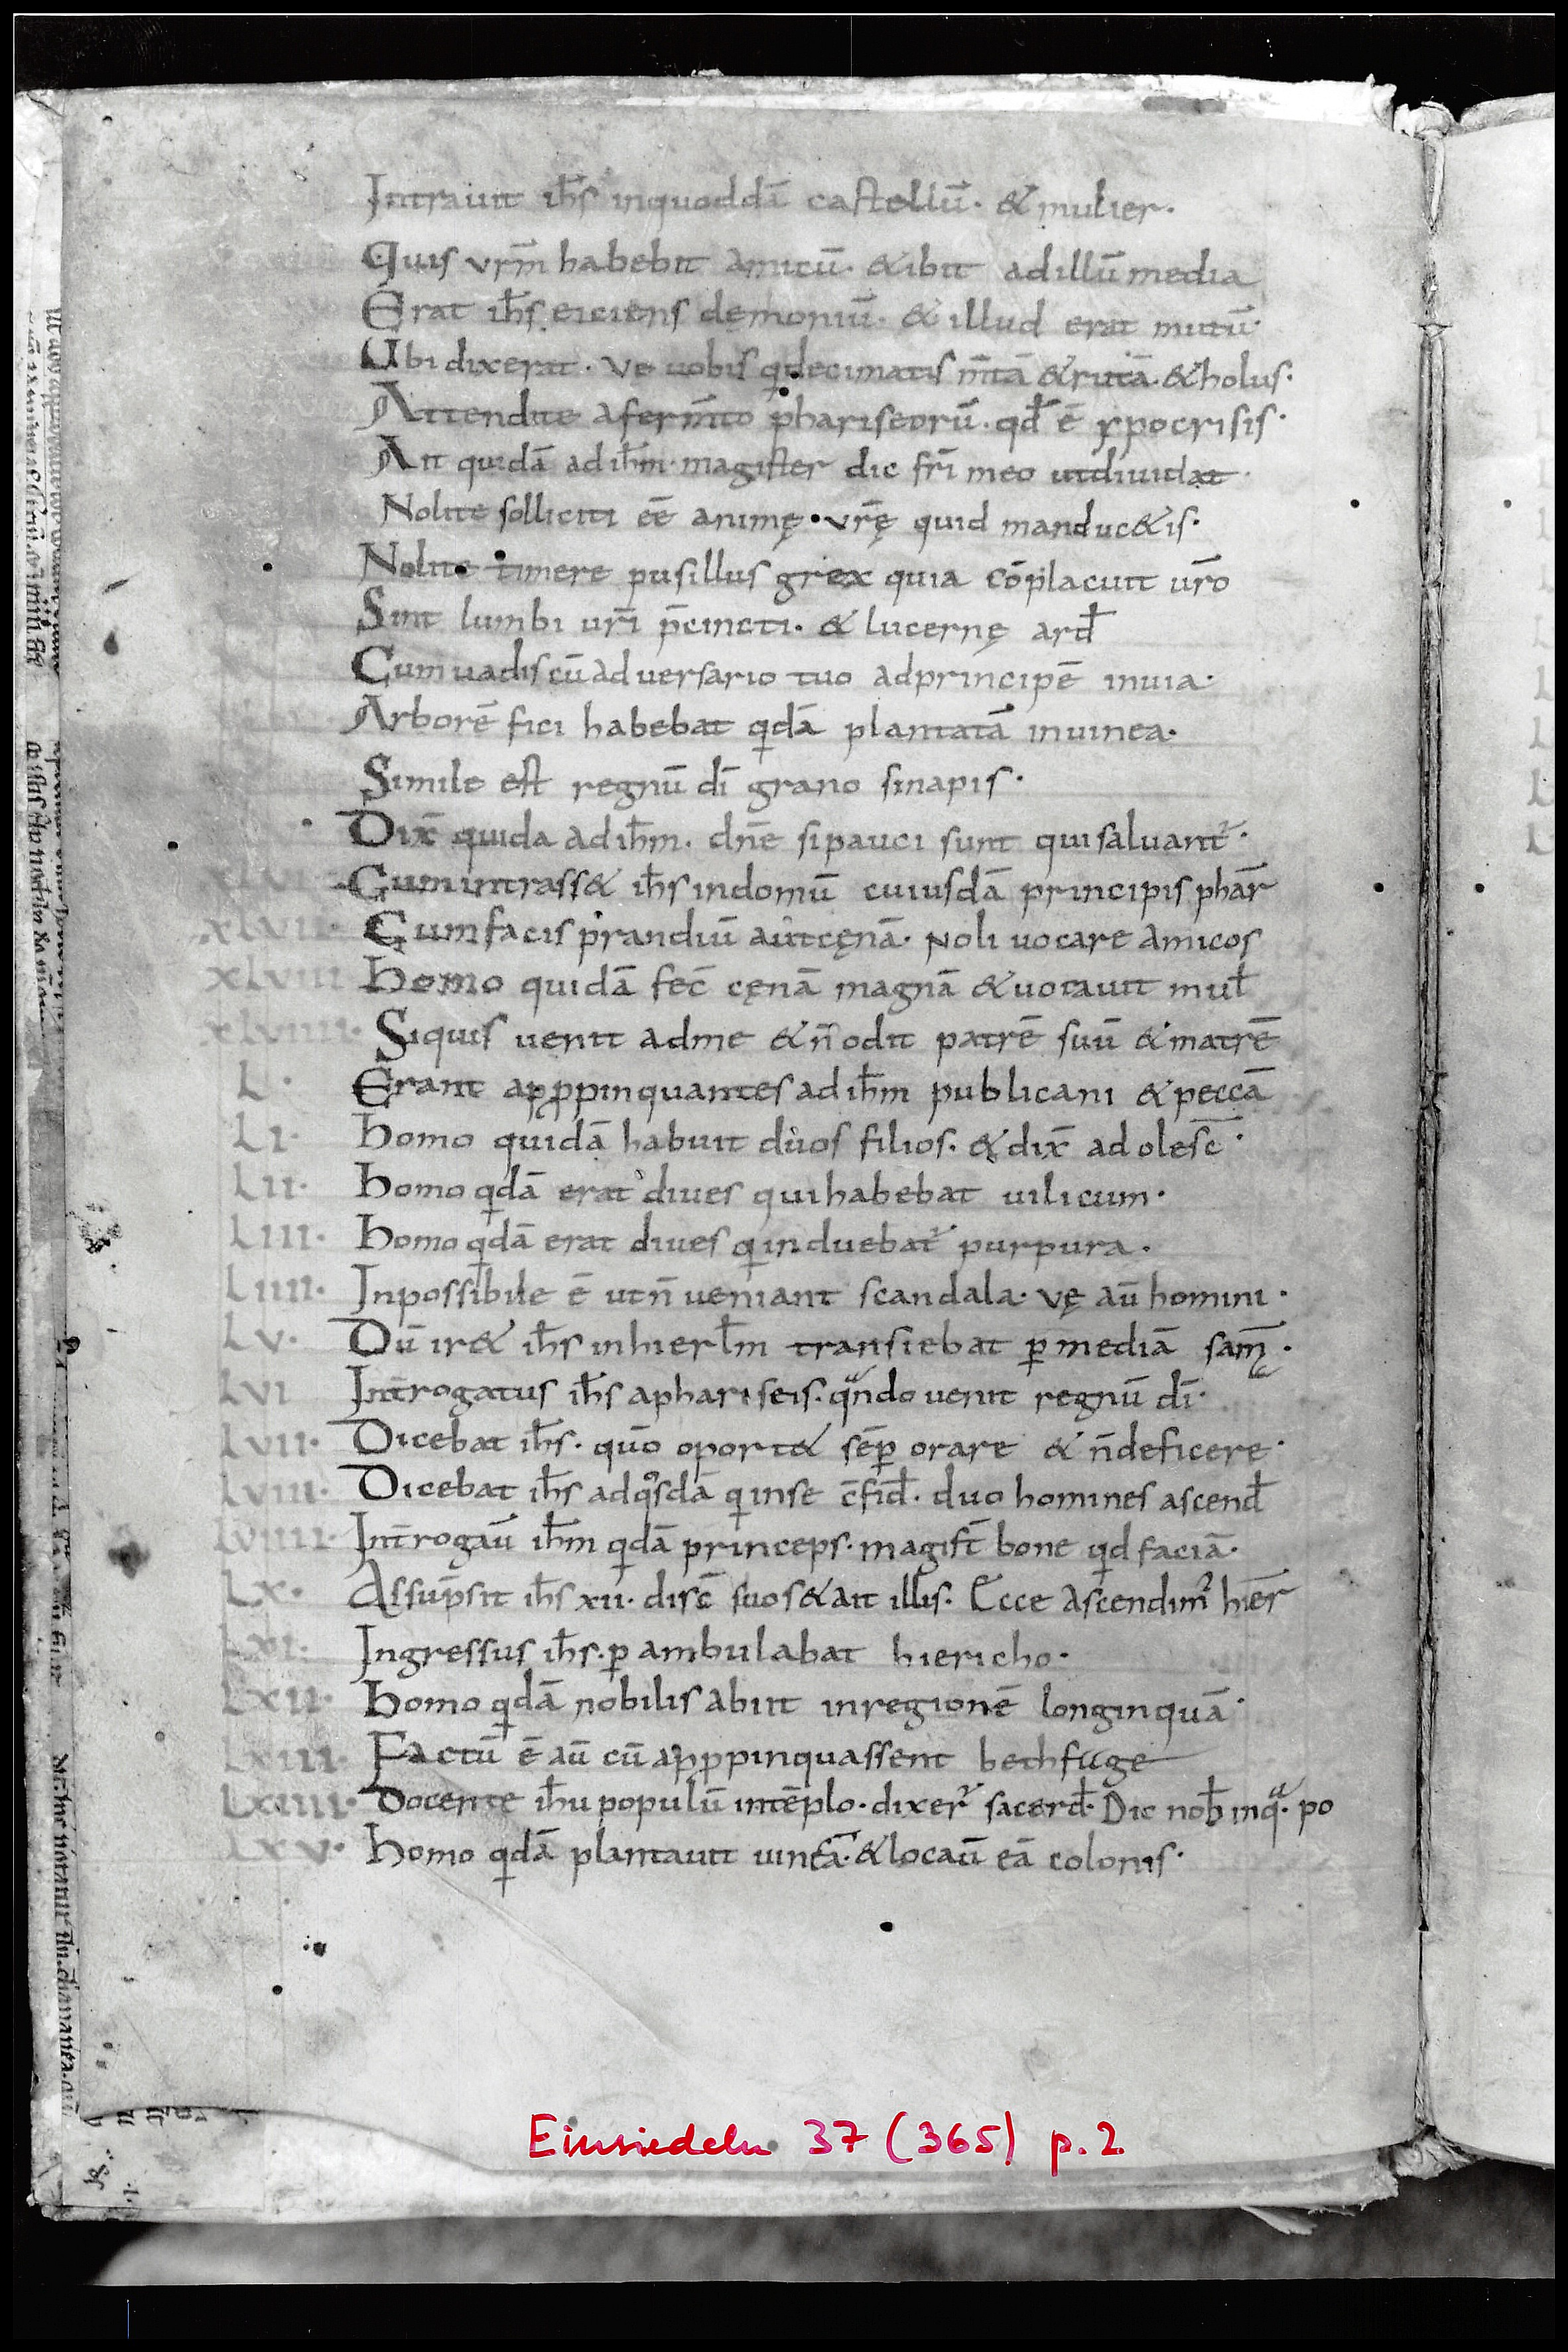 Intrauit ih̅s inquoddā castellū· & mulier·
Quis vrm̅ habebit amicū· & ibit adillū media
Erat ih̅s eiciens dęmoniū· & illud erat mutū·
Ubi dixerat· ve uobis qidecimatis m̅tā & rutā· & holus·
Attendite aferm̅to phariseorū· qd̅ ē ypocrisis·
Ait quidā adih̅m· magister dic fr̅i meo utdiuidat·
Nolite solliciti eē animę vrę̅ quid manduc&is·
Nolite timere pusillus grex quia cōplacuit ur̅o
Sint lumbi ur̅i p̅cincti· & lucernę ard̅
Cum uadis cū aduersario tuo adprincipē inuia·
Arborē fici habebat qidā plantatā inuinea·
Simile est regnū dī grano sinapis·
Dix̅ quida adih̅m· dn̅e sipauci sunt qui saluant᷑·
Cum intrass& ih̅s indomū cuiusdā principis phar̅
xlvii· Cum facis prandiū aut cęnā· Noli uocare amicos
xlviii Homo quidā fec̅ cęnā magnā & uocauit mul̅
xlviiii· Siquis uenit adme & n̅ odit patrē suū & matrē
L· Erant appropinquantes adih̅m publicani & peccā
LI· Homo quidā habuit duos filios· & dix̅ adolesc̅·
LII· Homo qidā erat diues qui habebat uilicum·
LIII· Homo qidā erat diues qi induebat᷑ purpura·
LIIII· Inpossibile ē utn̅ ueniant scandala· vę aū homini·
LV· Dū ir& ih̅s inhierl̅m transiebat ꝑ mediā sam̅·
LVI Int̅rogatus ih̅s aphariseis· qn̅do uenit regnū dī·
LVII· Dicebat ih̅s· quō oport& sēꝑ orare & n̅deficere·
LVIII· Dicebat ih̅s adqosdā qi inse c̅fid̅· duo homines ascend̅
LVIIII· Int̅rogaū ih̅m qidā princeps· magist̅ bone qid faciā·
LX· Assūpsit ih̅s xii· disc̅ suos & ait illis· Ecce ascendim᷒ hier̅
LXI· Ingressus ih̅s· ꝑambulabat hiericho·
LXII· Homo qidā nobilis abiit inregionē longinquā·
LXIII· Factū ē aū cū appropinquassent bethfage
LXIIII· Docente ih̅u populū intēplo· dixer᷑ sacerd̅· Dic nob̅ inqa· po
LXV· Homo qidā plantauit uineā· & locaū eā colonis·
Einsiedeln 37 (365) p. 2